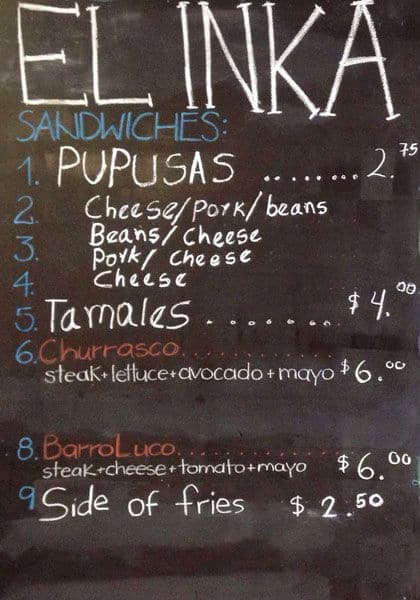 EL INKA
SANDWICHES:
1. PUPUSAS ......... 2.75
2. Cheese/Pork/beans
3. Beans/Cheese
Pork/Cheese
4. Cheese
5. Tamales ........ $4.00
6. Churrasco..............
steak+lettuce+avocado+mayo $6.00
8. BarroLuco..............
steak+cheese+tomato+mayo $6.00
9 Side of fries $2.50